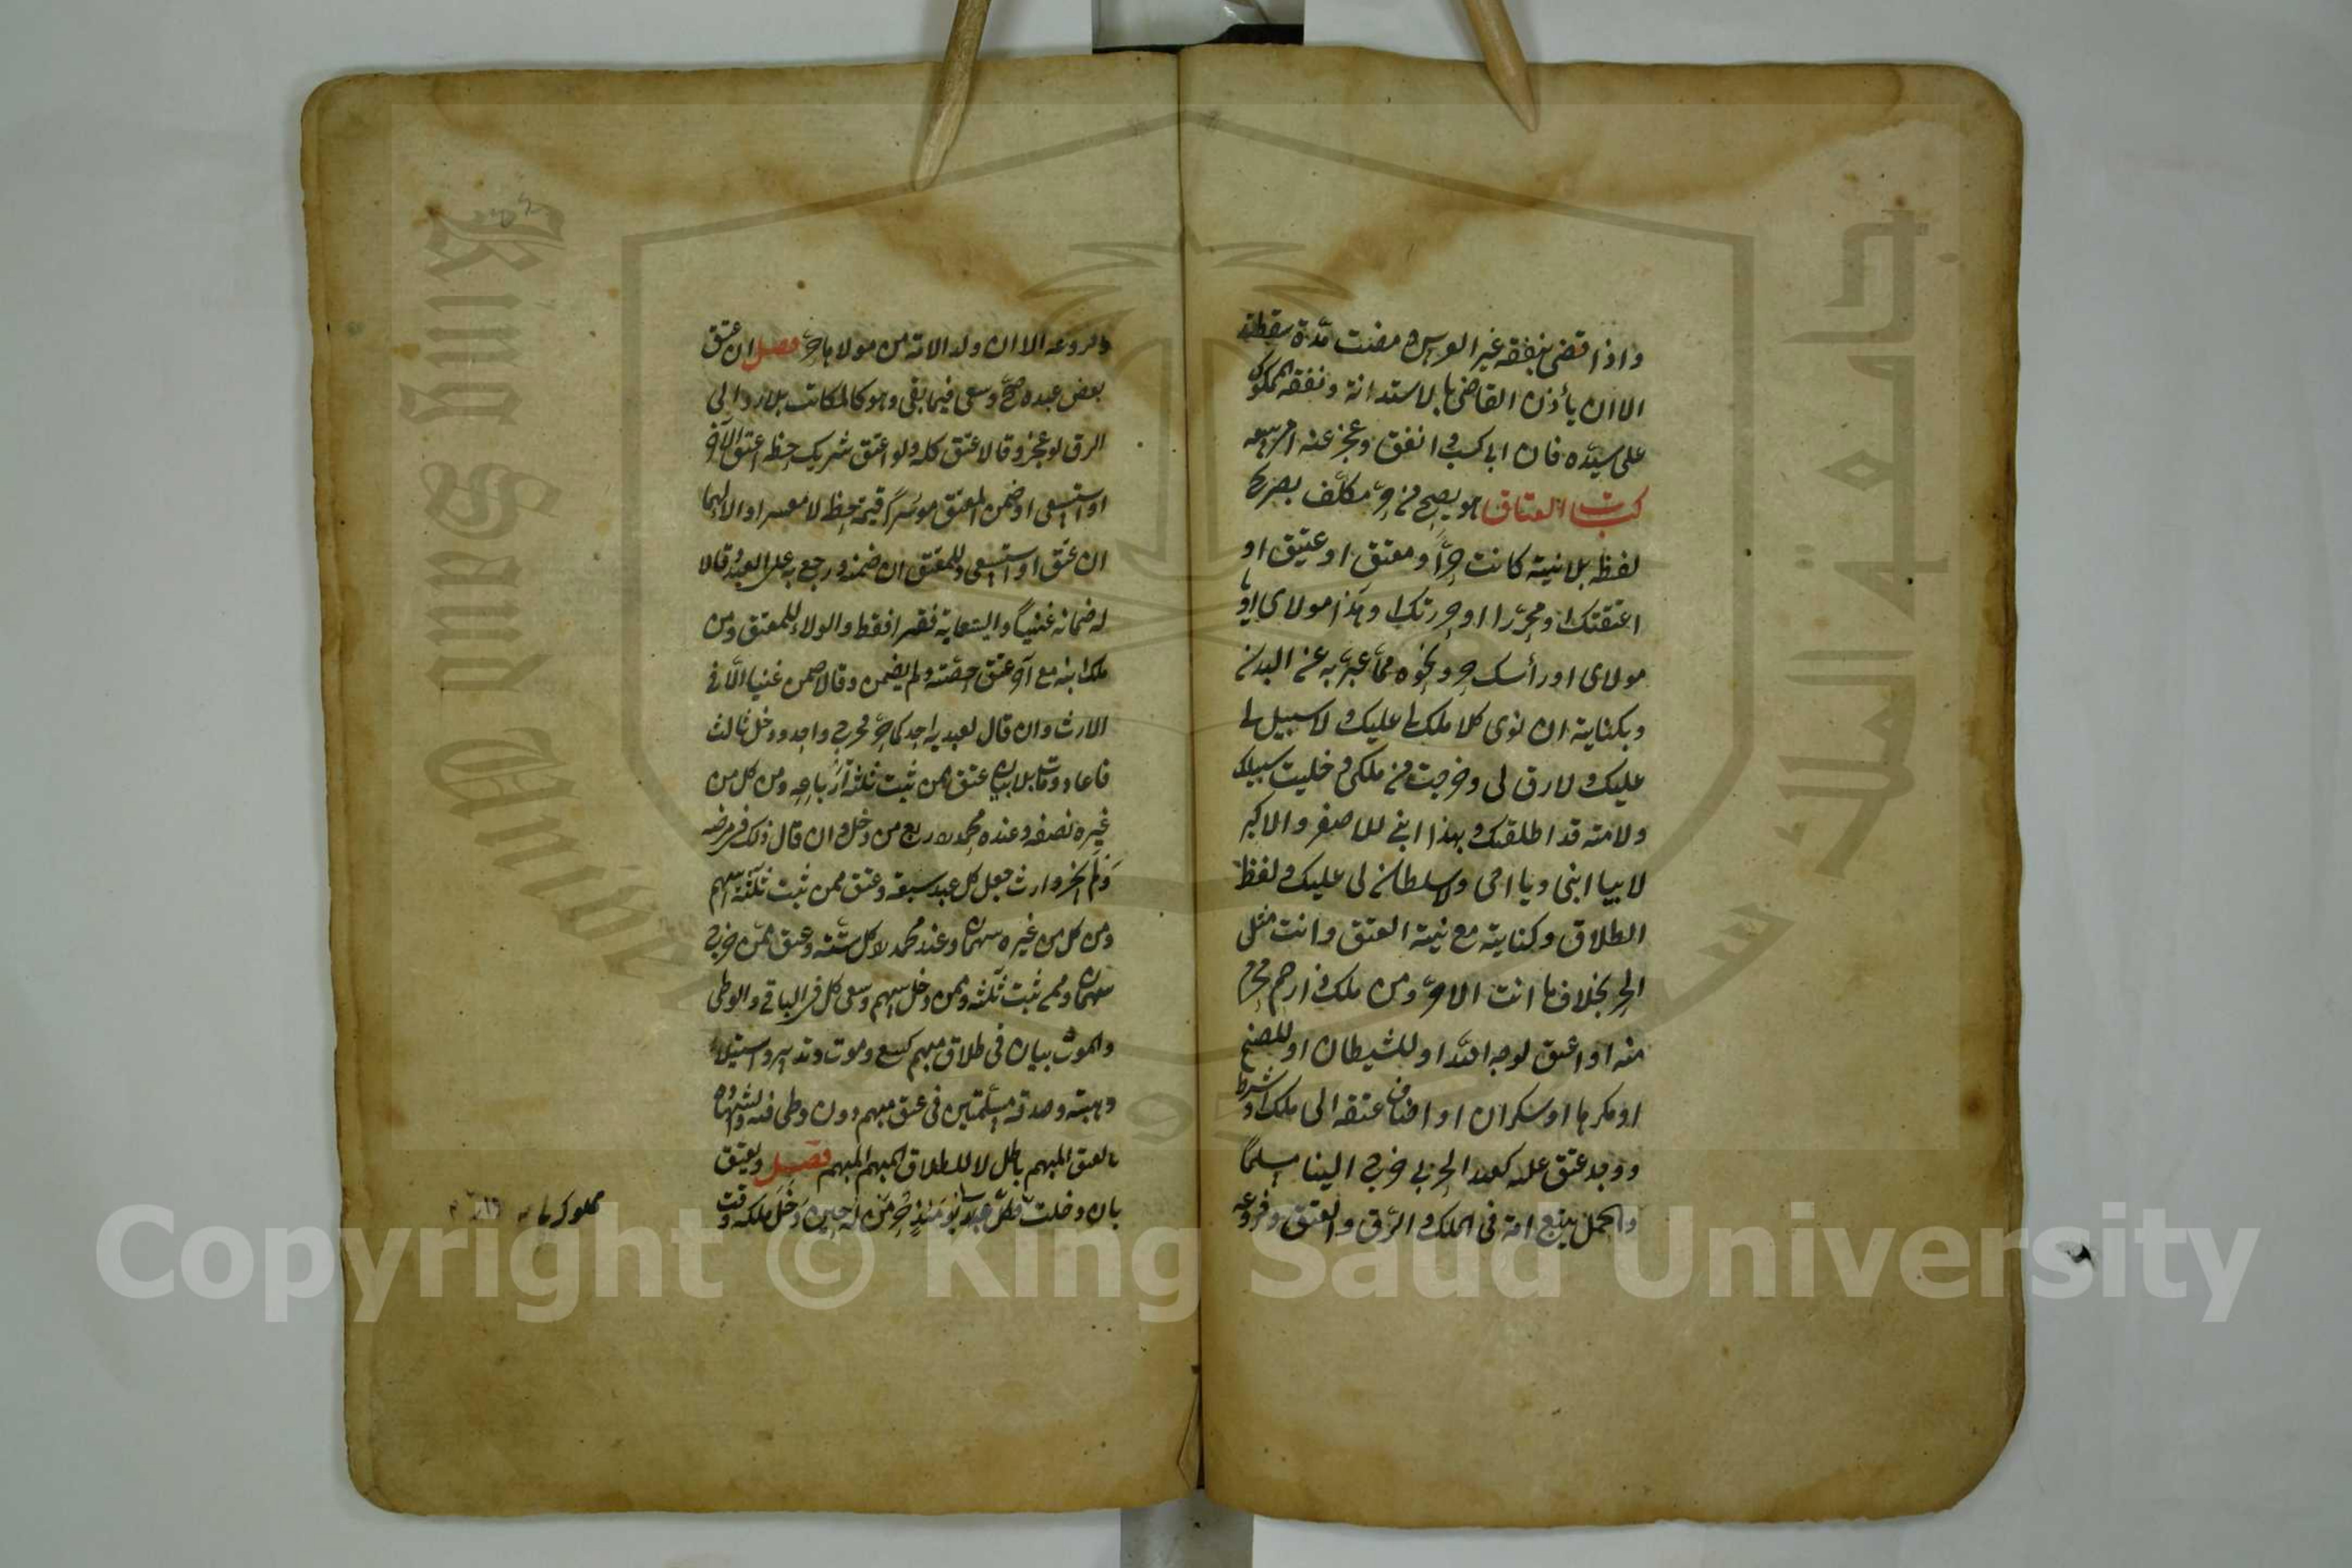 واذا قضى بنفقة غير العرس ومضت مدة سقطت
الا ان يأذن القاضى بالاستدانة ونفقة المملوك
على سيده فان ابى كسب وانفق وعجز عنه امر ببيعه
كتاب العتاق هو يصح من حر مكلف بصريح
لفظه بلا نية كانت حر او معتق او عتيق او
اعتقتك او محررا او حررتك او هذا مولاى او يا
مولاى او رأسك حر ونحوه مما عبر به عن البدن
وبكناية ان نوى كلا ملك لى عليك ولا سبيل لى
عليك ولا رق لى وخرجت من ملكى وخليت سبيلك
ولامته قد اطلقتك وبهذا ابنى للاصغر والاكبر
لا بيا ابنى ويا اخى ولا سلطان لى عليك ولفظ
الطلاق وكنايته مع نية العتق وانت مثل
الحر بخلاف ما انت الا حر ومن ملك ذا رحم محرم
منه او اعتق لوجه الله او للشيطان او للصنم
او مكرها او سكران او اضاف عتقه الى ملك او شرط
ووجد عتق عليه كعبد الحربى خرج الينا مسلما
والحمل يتبع امه فى الملك والرق والعتق وفروعه
وفروعه الا ان ولد الامة من مولاها حر فصل ان عتق
بعض عبده صح وسعى فيما بقى وهو كالمكاتب بلا رد الى
الرق لو عجز وقالا عتق كله ولو اعتق شريك حظه اعتق الآخر
او استسعى او ضمن المعتق موسرا قيمة حظه لا معسرا والولاء لهما
ان عتق او استسعى وللمعتق ان ضمنه ورجع به على العبد وقالا
له ضمانه غنيا والسعاية فقيرا فقط والولاء للمعتق ومن
ملك ابنه مع آخر عتق حصته ولم يضمن وقالا ضمن غنيا الا فى
الارث وان قال لعبديه احدكما حر فخرج واحد ودخل ثالث
فاعاد ومات بلا بيان عتق ممن ثبت ثلثة ارباعه ومن كل من
غيره نصفه وعند محمد ربع من دخل وان قال ذلك فى مرضه
ولم يجز وارث جعل كل عبد سبعة وعتق ممن ثبت ثلثة اسهم
ومن كل من غيره سهمان وعند محمد كل ستة وعتق ممن خرج
سهمان وممن ثبت ثلثة وممن دخل سهم وسعى كل فى الباقى والوطى
والموت بيان فى طلاق مبهم كبيع وموت وتدبير واستيلاد
وهبة وصدقة مسلمتين فى عتق مبهم دون وطى فيه والشهادة
بالعتق المبهم باطل لا للطلاق المبهم فصل ويعتق
بان دخلت فكل عبد لى يومئذ حر من له حين دخل ملكه وقت